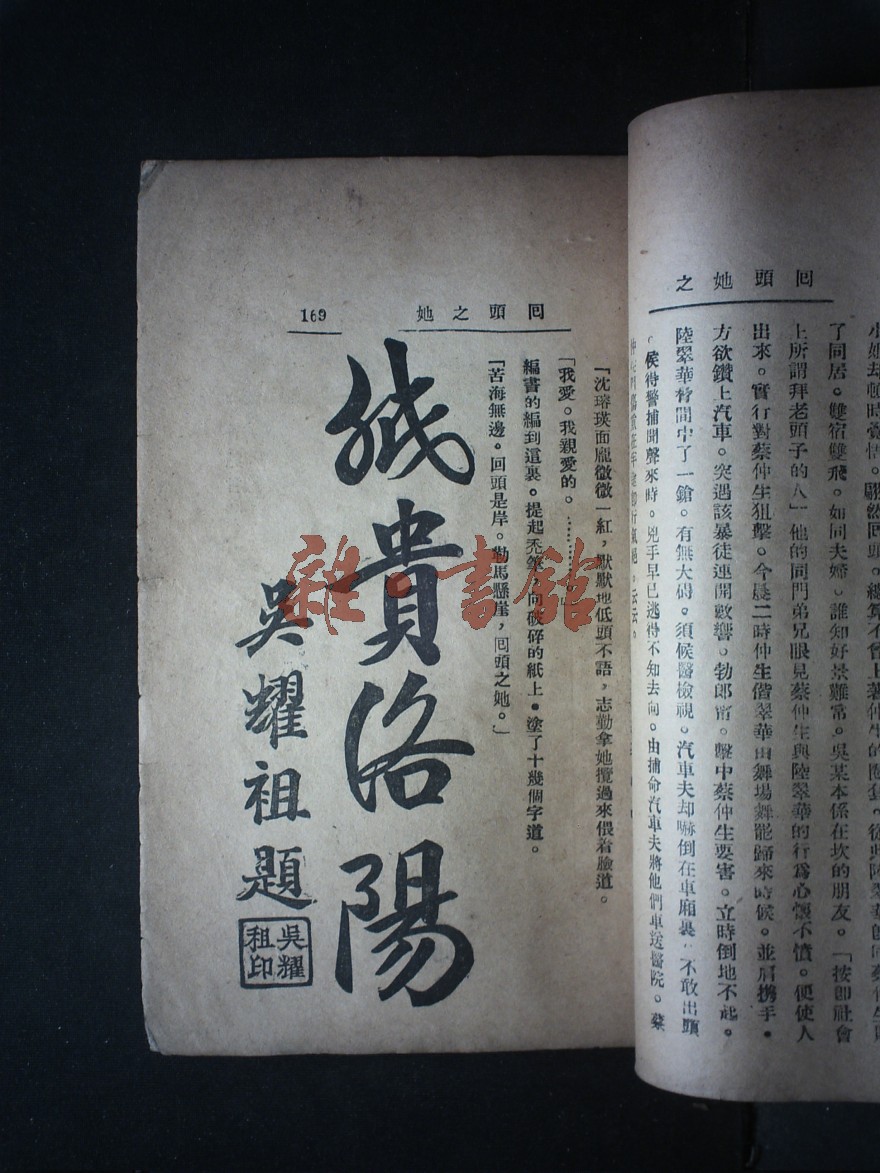 囘頭她之
了同居。雙宿雙飛。如同夫婦。誰知好景難常。吳某本係在坎的朋友。「按卽社會
上所謂拜老頭子的人」他的同門弟兄眼見蔡仲生與陸翠華的行爲心懷不憤。便使人
出來。實行對蔡仲生狙擊。今晨二時仲生偕翠華由舞場舞罷歸來時候。並肩携手。
方欲鑽上汽車。突遇該暴徒連開數響。勃郎甯。擊中蔡仲生要害。立時倒地不起。
陸翠華脅間中了一鎗。有無大碍。須候醫檢視。汽車夫却嚇倒在車廂裏。不敢出頭
。候待警捕聞聲來時。兇手早已逃得不知去向。由捕命汽車夫將他們車送醫院。蔡
云云。
囘頭之她
169
「沈瑢瑛面龐微微一紅，默默地低頭不語，志勤拿她攬過來偎着臉道。
「我愛。我親愛的。…………」
編書的編到這裏。提起禿筆，向破碎的紙上。塗了十幾個字道。
「苦海無邊。回頭是岸。勒馬懸崖，囘頭之她。」
紙貴洛陽
吳耀祖題
吳耀
祖印
雜·書館